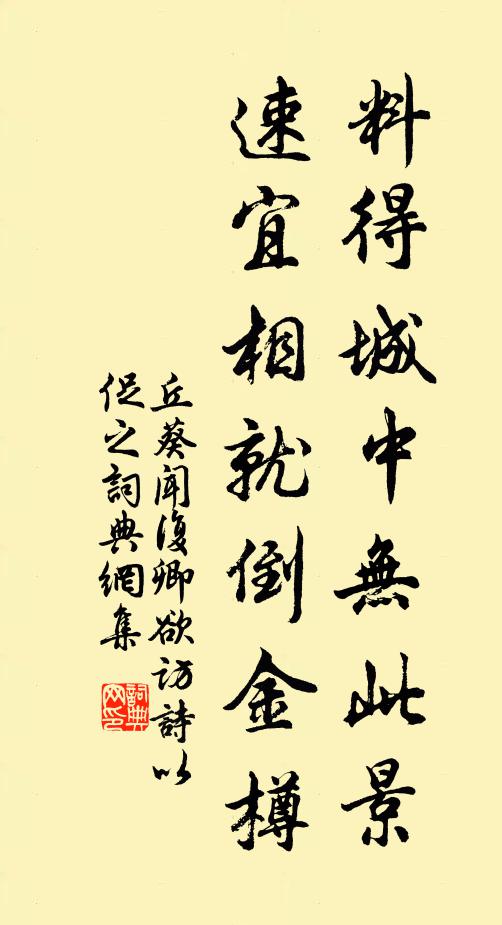 料得城中無此景
速宜相就倒金樽
丘葵聞復卿欲访詩以
促之詞典網集
詞典
网印